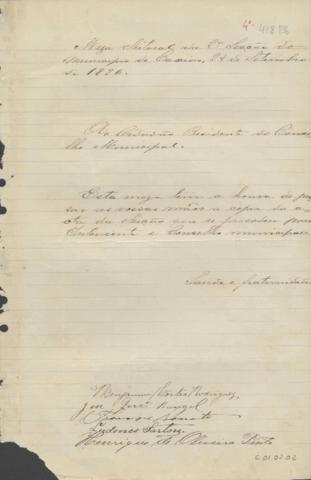 4º 418 B
Meza Eleitoral da 2ª Secção do
Municipio de Caxias, 24 de Setembro
de 1896.
Ao Cidadão Presidente do Conse-
lho Municipal.
Esta meza tem a honra de pas-
sar as vossas mãos a copia da a-
cta da eleição que se procedeu para
Intendente e Conselho municipal.
Saude e fraternidade
Benjamin Cortes Rodrigues,
José Rangel
Henrique de Oliveira Pinto
C.01.02.02